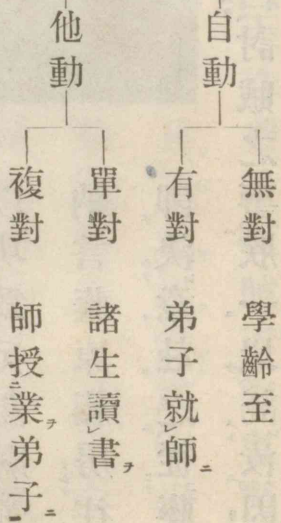 自動
無對 學齡至
有對 弟子就㆑師ニ
他動
單對 諸生讀㆑書ヲ
複對 師授ニ業ヲ弟子ニ